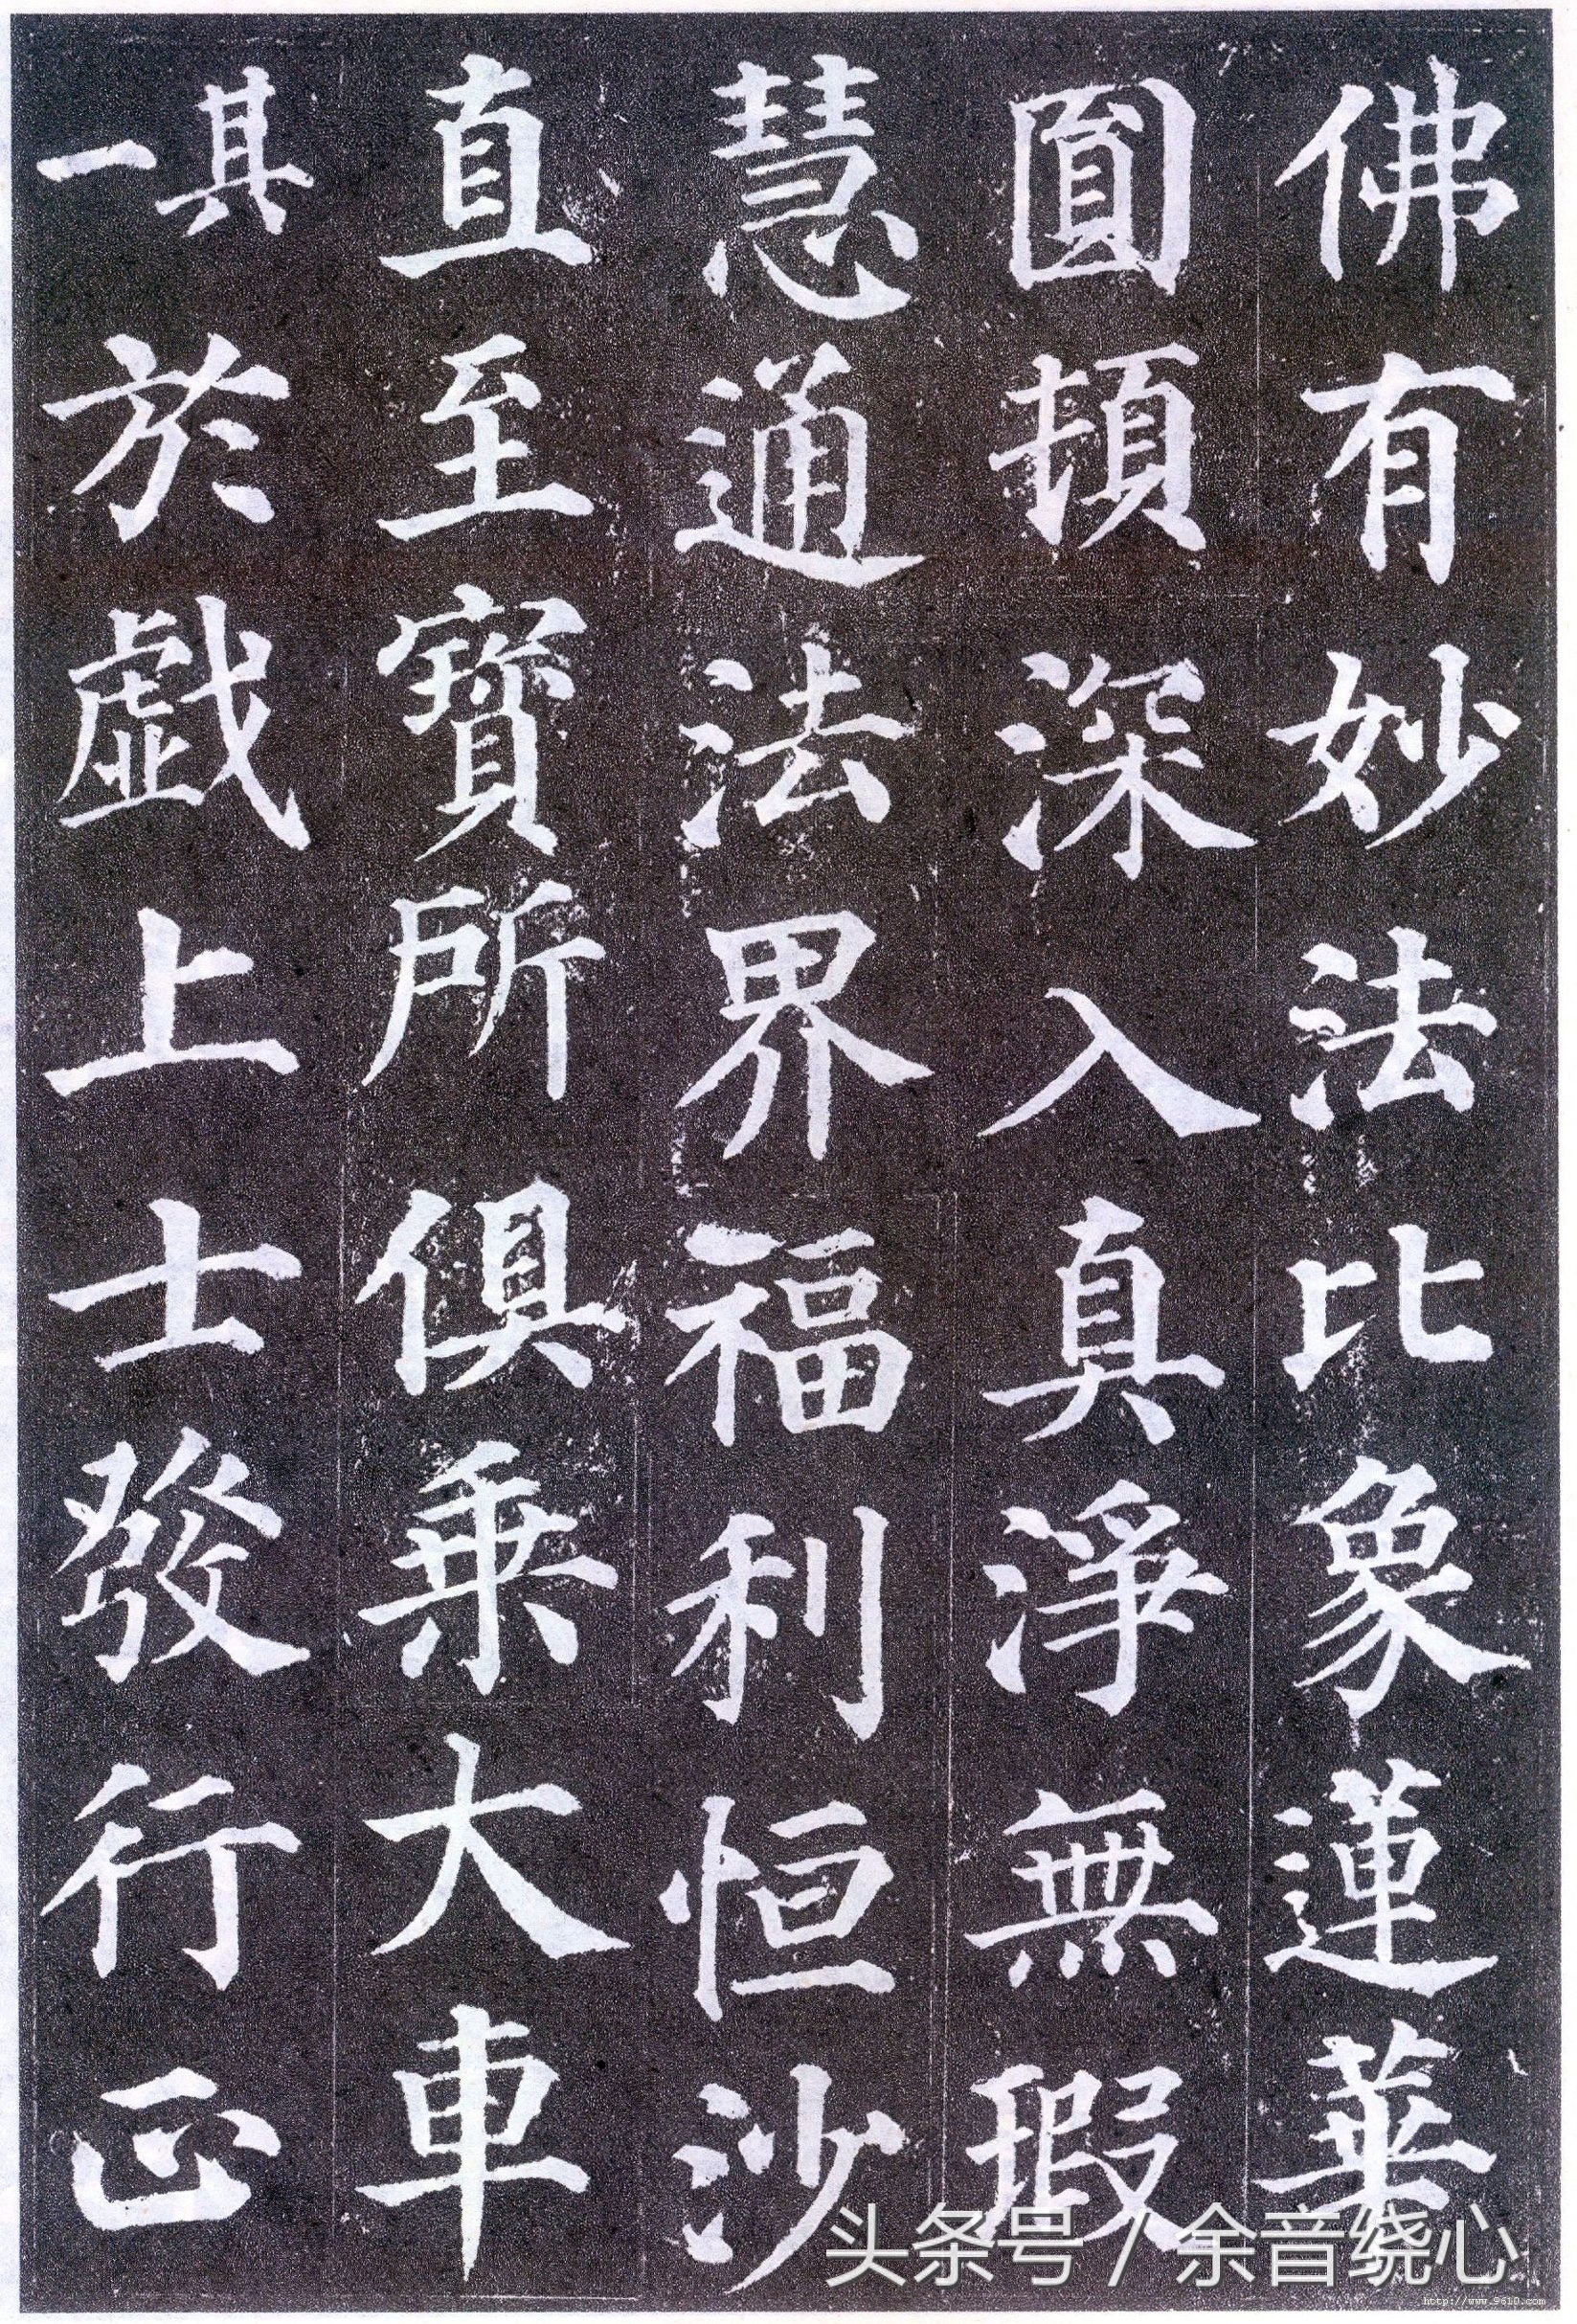 佛有妙法比象蓮華
圓頓深入真淨無瑕
慧通法界福利恒沙
直至寶所俱乘大車
其一
於戲上士發行正
头条号 / 余音绕心
http://www.9610.com